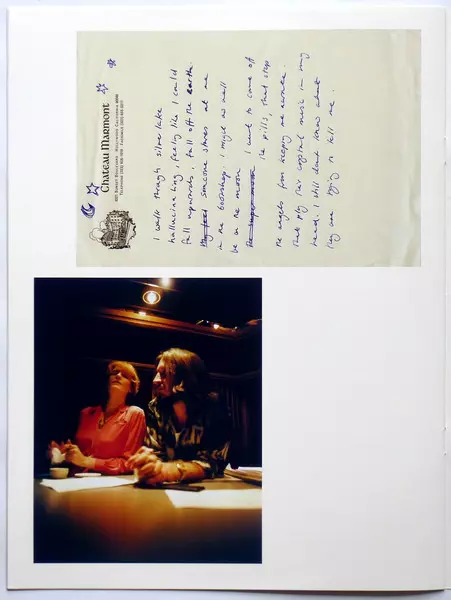 Chateau Marmont
8221 Sunset Boulevard, Hollywood, California 90046
I walk through silver lake
hallucinating feeling like I could
fall upwards. fall off the earth.
someone stares at me
in the bookshop. I might as well
be on the moon. I want to come off
the pills, that stop
the angels from keeping me awake.
That play their crystal music in my
head. I still dont know what
they are trying to tell me.